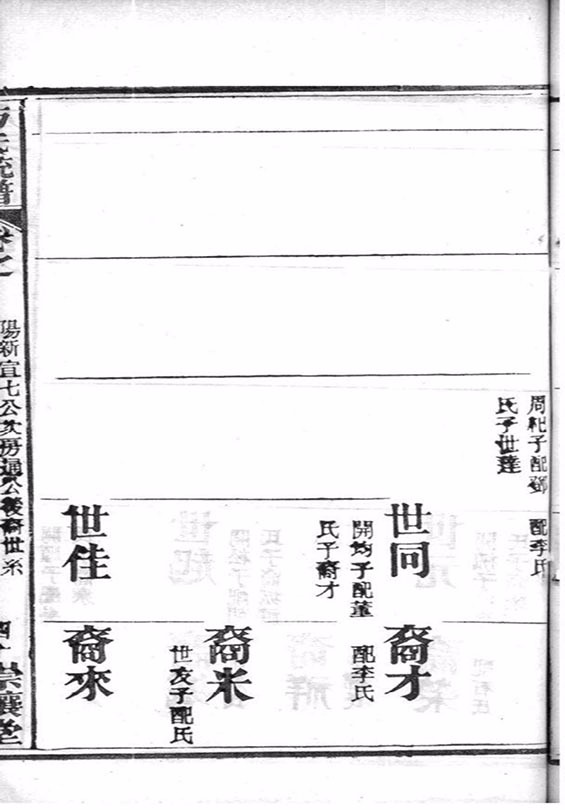 周𥘉子配鄧
氏子世達
配李氏
世同
開鈞子配董
氏子裔才
世佳
裔才
配李氏
裔米
世友子配氏
裔來
氏統譜
卷之
陽新宣七公次房通公後裔世系
堂